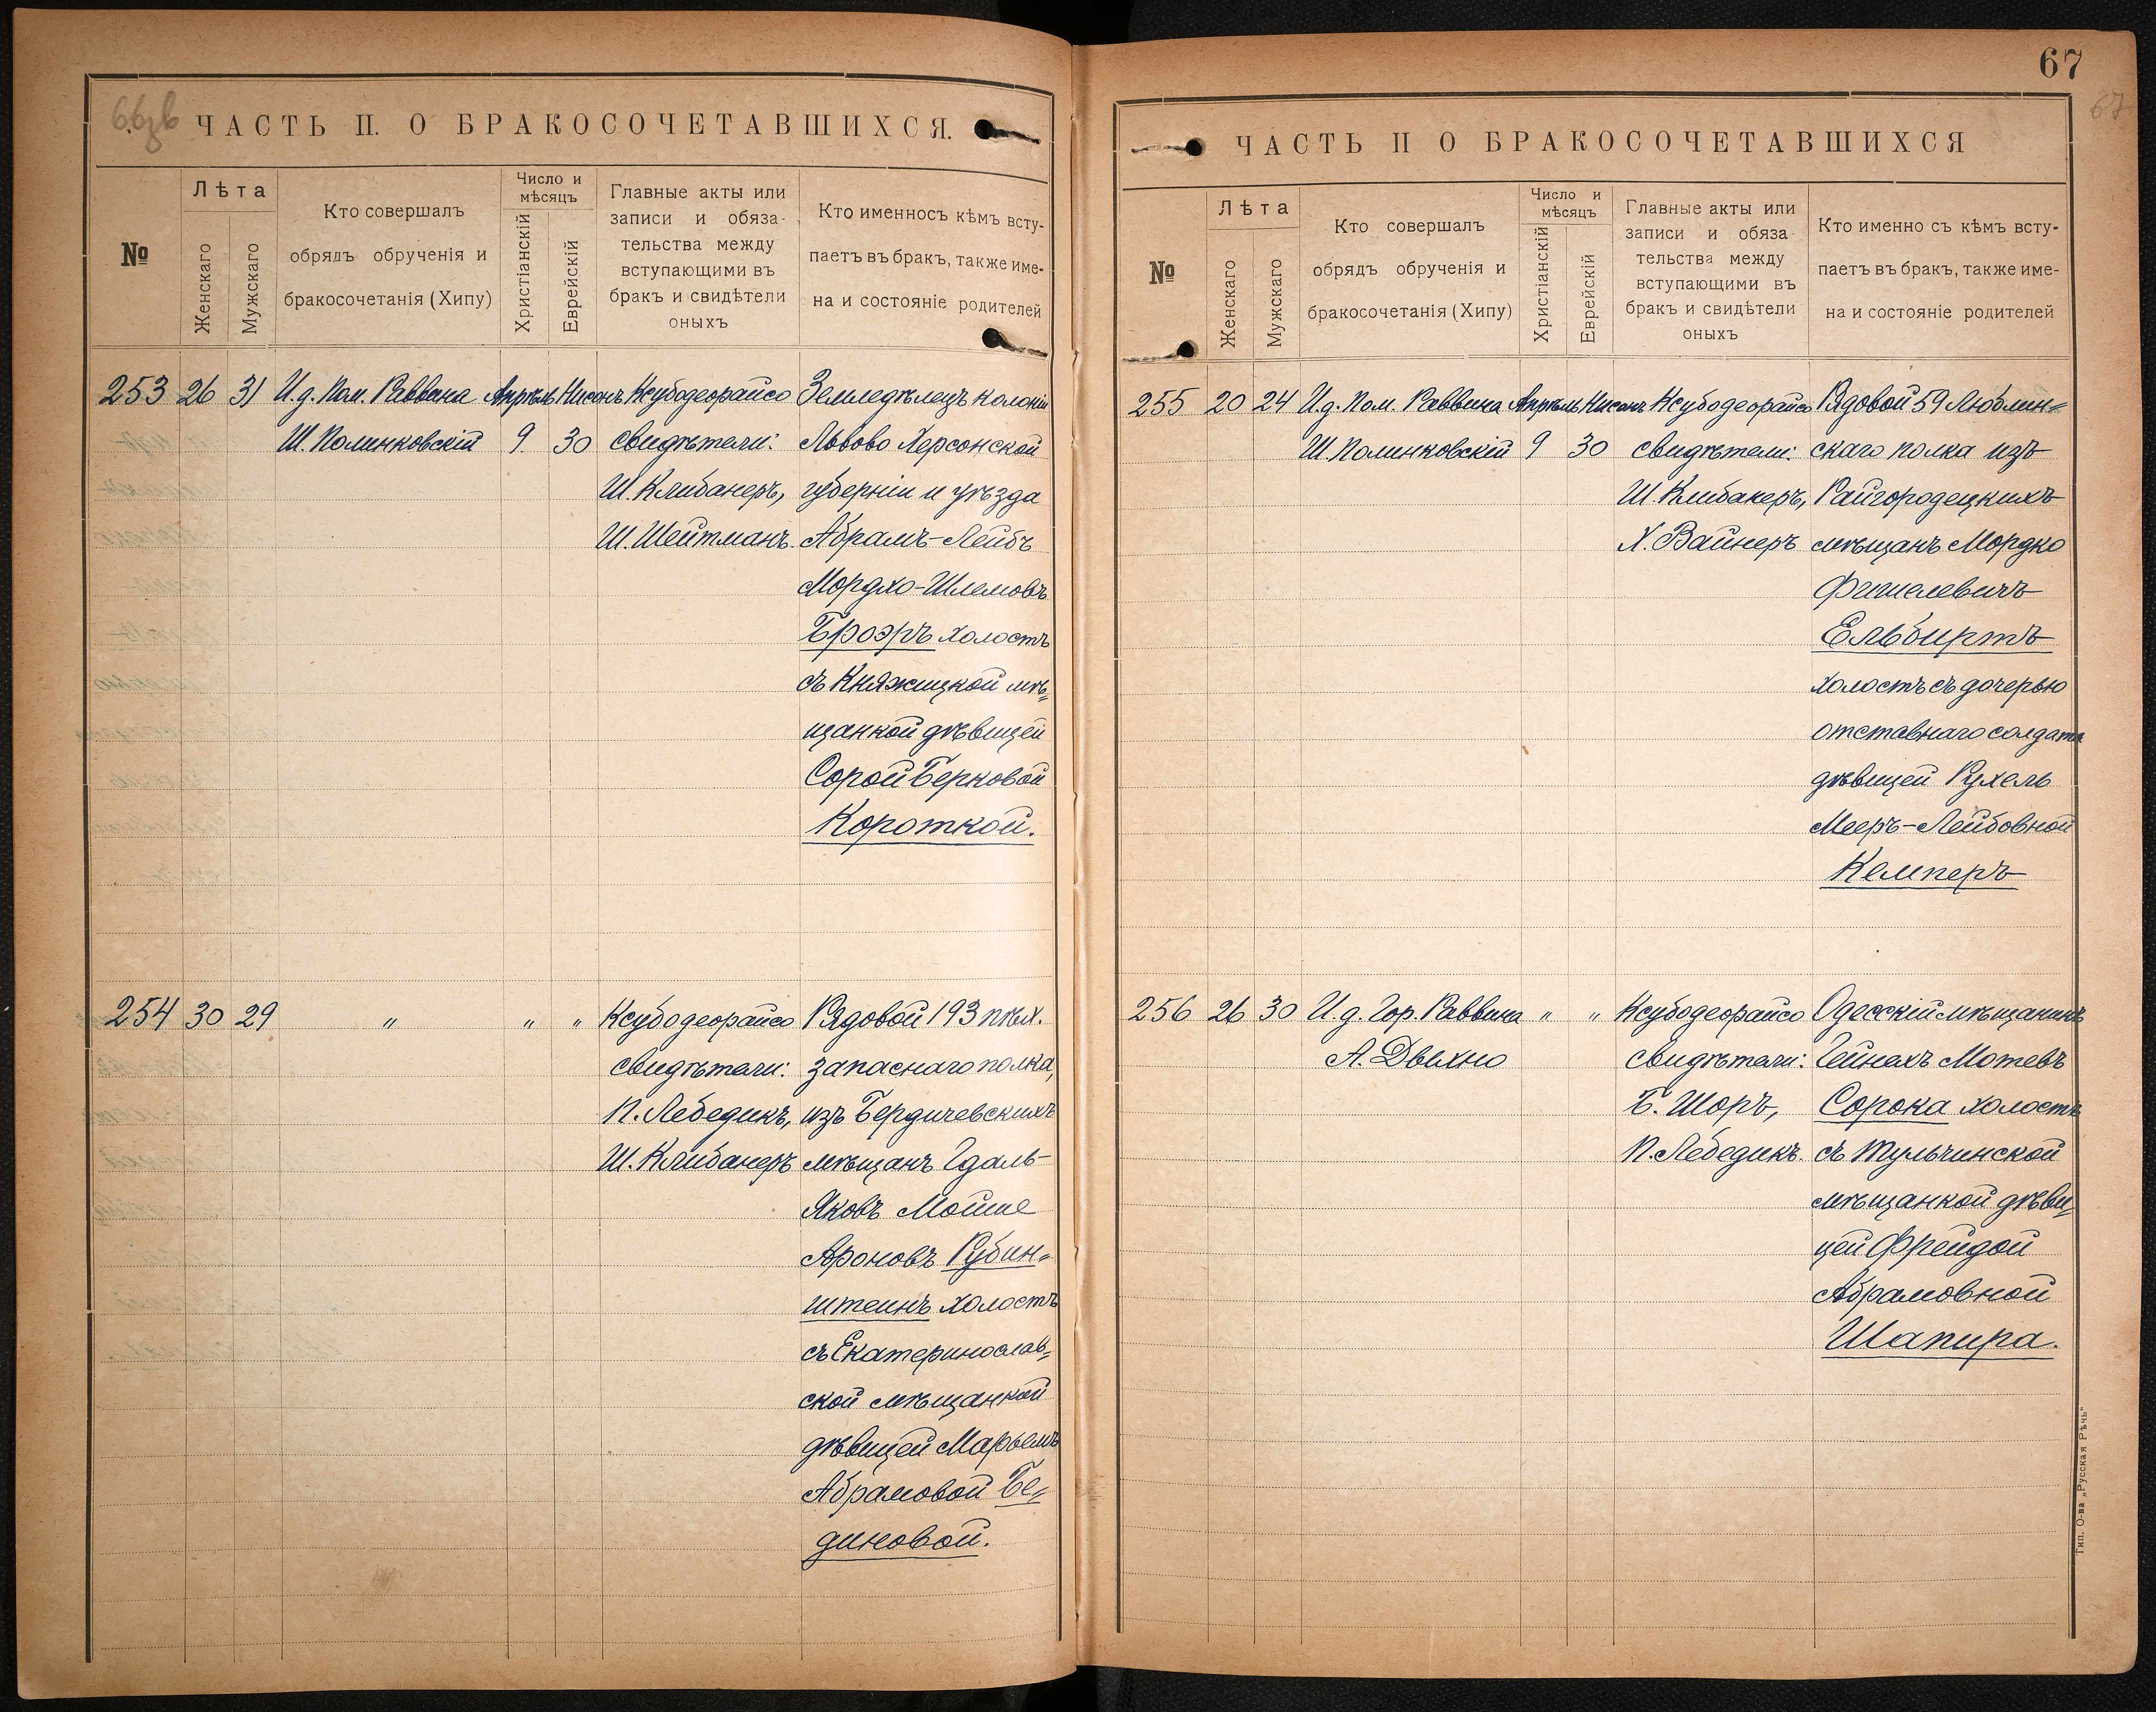 66зв
ЧАСТЬ II. О БРАКОСОЧЕТАВШИХСЯ.
№
Лѣта
Женскаго
Мужскаго
Кто совершалъ
обрядъ обрученія и
бракосочетанія (Хипу)
Число и
мѣсяцъ
Христіанскій
Еврейскій
Главные акты или
записи и обяза-
тельства между
вступающими въ
бракъ и свидѣтели
оныхъ
Кто именносъ кѣмъ всту-
паетъ въ бракъ, также име-
на и состояніе родителей
253 26 31 И.д. Пом. Раввина Апрѣль Нисанъ Ксубодеорайсо Земледѣлецъ колоніи
Ш. Полинковскій 9. 30 свидѣтели: Львово Херсонской
Ш. Клибанеръ, губерніи и уѣзда
Ш. Шейтманъ. Абрамъ-Лейбъ
Мордхо-Шлемовъ
Броэръ холостъ
съ Княжицкой мѣ=
щанкой дѣвицей
Сорой Берковой
Короткой.
254 30 29 „ „ „ Ксубодеорайсо Рядовой 193 пѣх.
свидѣтели: запаснаго полка,
П. Лебедикъ, изъ Бердичевскихъ
Ш. Клибанеръ мѣщанъ Гдаль-
Яковъ Мойше
Ароновъ Рубин=
штейнъ холостъ
съ Екатеринослав=
ской мѣщанкой
дѣвицей Марьемъ
Абрамовой Бе=
диновой.
67
67
ЧАСТЬ II О БРАКОСОЧЕТАВШИХСЯ
№
Лѣта
Женскаго
Мужскаго
Кто совершалъ
обрядъ обрученія и
бракосочетанія (Хипу)
Число и
мѣсяцъ
Христіанскій
Еврейскій
Главные акты или
записи и обяза-
тельства между
вступающими въ
бракъ и свидѣтели
оныхъ
Кто именно съ кѣмъ всту-
паетъ въ бракъ, также име-
на и состояніе родителей
255 20 24 И.д. Пом. Раввина Апрѣль Нисанъ Ксубодеорайсо Рядовой 59 Люблин=
Ш. Полинковскій 9 30 свидѣтели: скаго полка изъ
Ш. Клибанеръ, Райгородецкихъ
Х. Вайнеръ мѣщанъ Мордко
Фишелевичъ
Ельбиртъ
холостъ съ дочерью
отставнаго солдата
дѣвицей Рухель
Мееръ-Лейбовной
Кемперъ
256 26 30 И.д. Гор. Раввина „ „ Ксубодеорайсо Одесскій мѣщанинъ
А. Дыхно свидѣтели: Гейнехъ Мотевъ
Б. Шоръ, Сорока холостъ
П. Лебедикъ. съ Тульчинской
мѣщанкой дѣви=
цей Фрейдой
Абрамовной
Шапира.
Тип. О-ва „Русская Рѣчь"